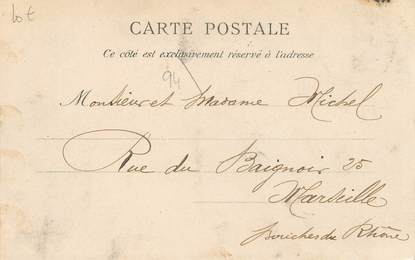 lot
CARTE POSTALE
Ce côté est exclusivement réservé à l'adresse
94
Monsieur et Madame Michel
Rue du Baignoir 25
Marseille
Bouches du Rhône